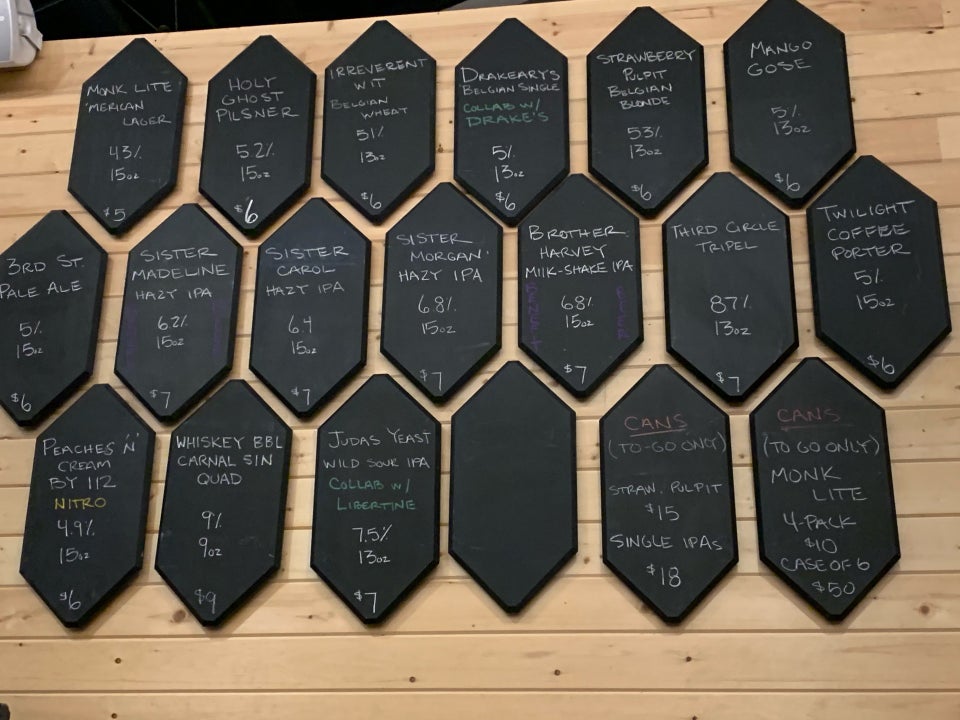 MONK LITE
'MERICAN
LAGER
4.3%
15oz
$5
HOLY
GHOST
PILSNER
5.2%
15oz
$6
IRREVERENT
WIT
BELGIAN
WHEAT
5.1%
13oz
$6
DRAKEARYS
BELGIAN SINGLE
COLLAB W/
DRAKE'S
5%
13oz
$6
STRAWBERRY
PULPIT
BELGIAN
BLONDE
5.3%
13oz
$6
MANGO
GOSE
5%
13oz
$6
3RD ST.
PALE ALE
5%
15oz
$6
SISTER
MADELINE
HAZY IPA
6.2%
15oz
$7
SISTER
CAROL
HAZY IPA
6.4
15oz
$7
SISTER
MORGAN
HAZY IPA
6.8%
15oz
$7
BROTHER
HARVEY
MILK-SHAKE IPA
6.8%
15oz
BENEFIT
$7
THIRD CIRCLE
TRIPEL
8.7%
13oz
$7
TWILIGHT
COFFEE
PORTER
5%
15oz
$6
PEACHES 'N'
CREAM
BY 112
NITRO
4.9%
15oz
$6
WHISKEY BBL
CARNAL SIN
QUAD
9%
9oz
$9
JUDAS YEAST
WILD SOUR IPA
COLLAB W/
LIBERTINE
7.5%
13oz
$7
CANS
(TO-GO ONLY)
STRAW. PULPIT
$15
SINGLE IPAs
$18
CANS
(TO GO ONLY)
MONK
LITE
4-PACK
$10
CASE OF 6
$50